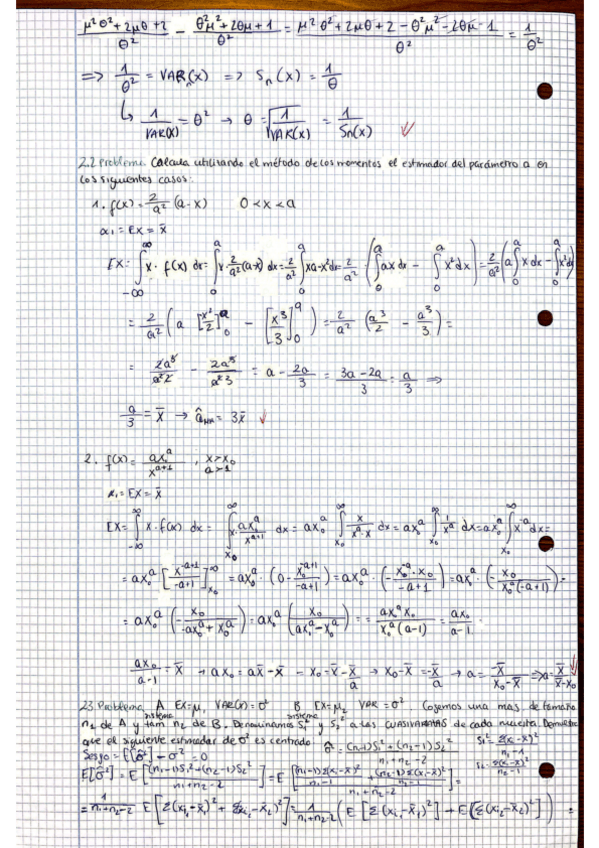 μ²θ²+2μθ+2 / θ² - θ²μ²+2θμ+1 / θ² = μ²θ²+2μθ+2-θ²μ²-2θμ-1 / θ² = 1/θ²
=> 1/θ² = VAR(x) => Sn(x) = 1/θ
↳ 1/VAR(x) = θ² → θ = √(1/VAR(x)) = 1/Sn(x) ✓
2.2 Problema. Calcula utilizando el método de los momentos el estimador del parámetro a en
los siguientes casos:
1. f(x) = 2/a² (a-x) 0<x<a
α₁ = EX = x̄
EX = ∫_{-∞}^{∞} x · f(x) dx = ∫_0^a x · 2/a² (a-x) dx = 2/a² ∫_0^a xa-x² dx = 2/a² (∫_0^a ax dx - ∫_0^a x² dx) = 2/a² (a ∫_0^a x dx - ∫_0^a x² dx)
= 2/a² (a [x²/2]_0^a - [x³/3]_0^a) = 2/a² (a³/2 - a³/3) =
= 2a³/a²2 - 2a³/a²3 = a - 2a/3 = 3a-2a/3 = a/3 =>
a/3 = x̄ → â_MM = 3x̄ ✓
2. f(x) = ax₀^a / x^{a+1} , x>x₀ a>1
α₁ = EX = x̄
EX = ∫_{-∞}^{∞} x · f(x) dx = ∫_{x₀}^{∞} x · ax₀^a / x^{a+1} dx = ax₀^a ∫_{x₀}^{∞} x / x^a·x dx = ax₀^a ∫_{x₀}^{∞} 1/x^a dx = ax₀^a ∫_{x₀}^{∞} x^{-a} dx =
= ax₀^a [x^{-a+1} / -a+1]_{x₀}^{∞} = ax₀^a · (0 - x₀^{-a+1} / -a+1) = ax₀^a · (- x₀^{-a}·x₀ / -a+1) = ax₀^a · (- x₀ / x₀^a(-a+1)) =
= ax₀^a (- x₀ / -ax₀^a + x₀^a) = ax₀^a (x₀ / ax₀^a - x₀^a) = = ax₀^a x₀ / x₀^a (a-1) = ax₀ / a-1
ax₀ / a-1 = x̄ → ax₀ = ax̄ - x̄ → x₀ = x̄ - x̄/a → x₀-x̄ = -x̄/a → a = -x̄ / x₀-x̄ => a = x̄ / x̄-x₀ ✓
2.3 Problema. A EX=μ, VAR(x)=σ² B EX=μ₂ VAR=σ². Cogemos una mas de tamaño
sistema sistema
n₂ de A y tam n₂ de B. Denominamos S₁² y S₂² a las CUASIVARIANZAS de cada muestra. Demuestra
que el siguiente estimador de σ² es centrado: σ̂² = (n₁-1)S₁² + (n₂-1)S₂² / n₁+n₂-2 S₁² = Σ(xᵢ-x̄)² / n₁-1
Sesgo = E[σ̂²] - σ² = 0 S₂ = Σ(xᵢ-x̄)² / n₂-1
E[σ̂²] = E [(n₁-1)S₁² + (n₂-1)S₂² / n₁+n₂-2] = E [(n₁-1)Σ(xᵢ-x̄)² / n₁-1 + (n₂-1)Σ(xᵢ-x̄)² / n₂-1 / n₁+n₂-2] =
= 1/n₁+n₂-2 E [Σ(xᵢ₁-x̄₁)² + Σ(xᵢ₂-x̄₂)²] = 1/n₁+n₂-2 (E [Σ(xᵢ₁-x̄₁)²] + E [Σ(xᵢ₂-x̄₂)²]) =